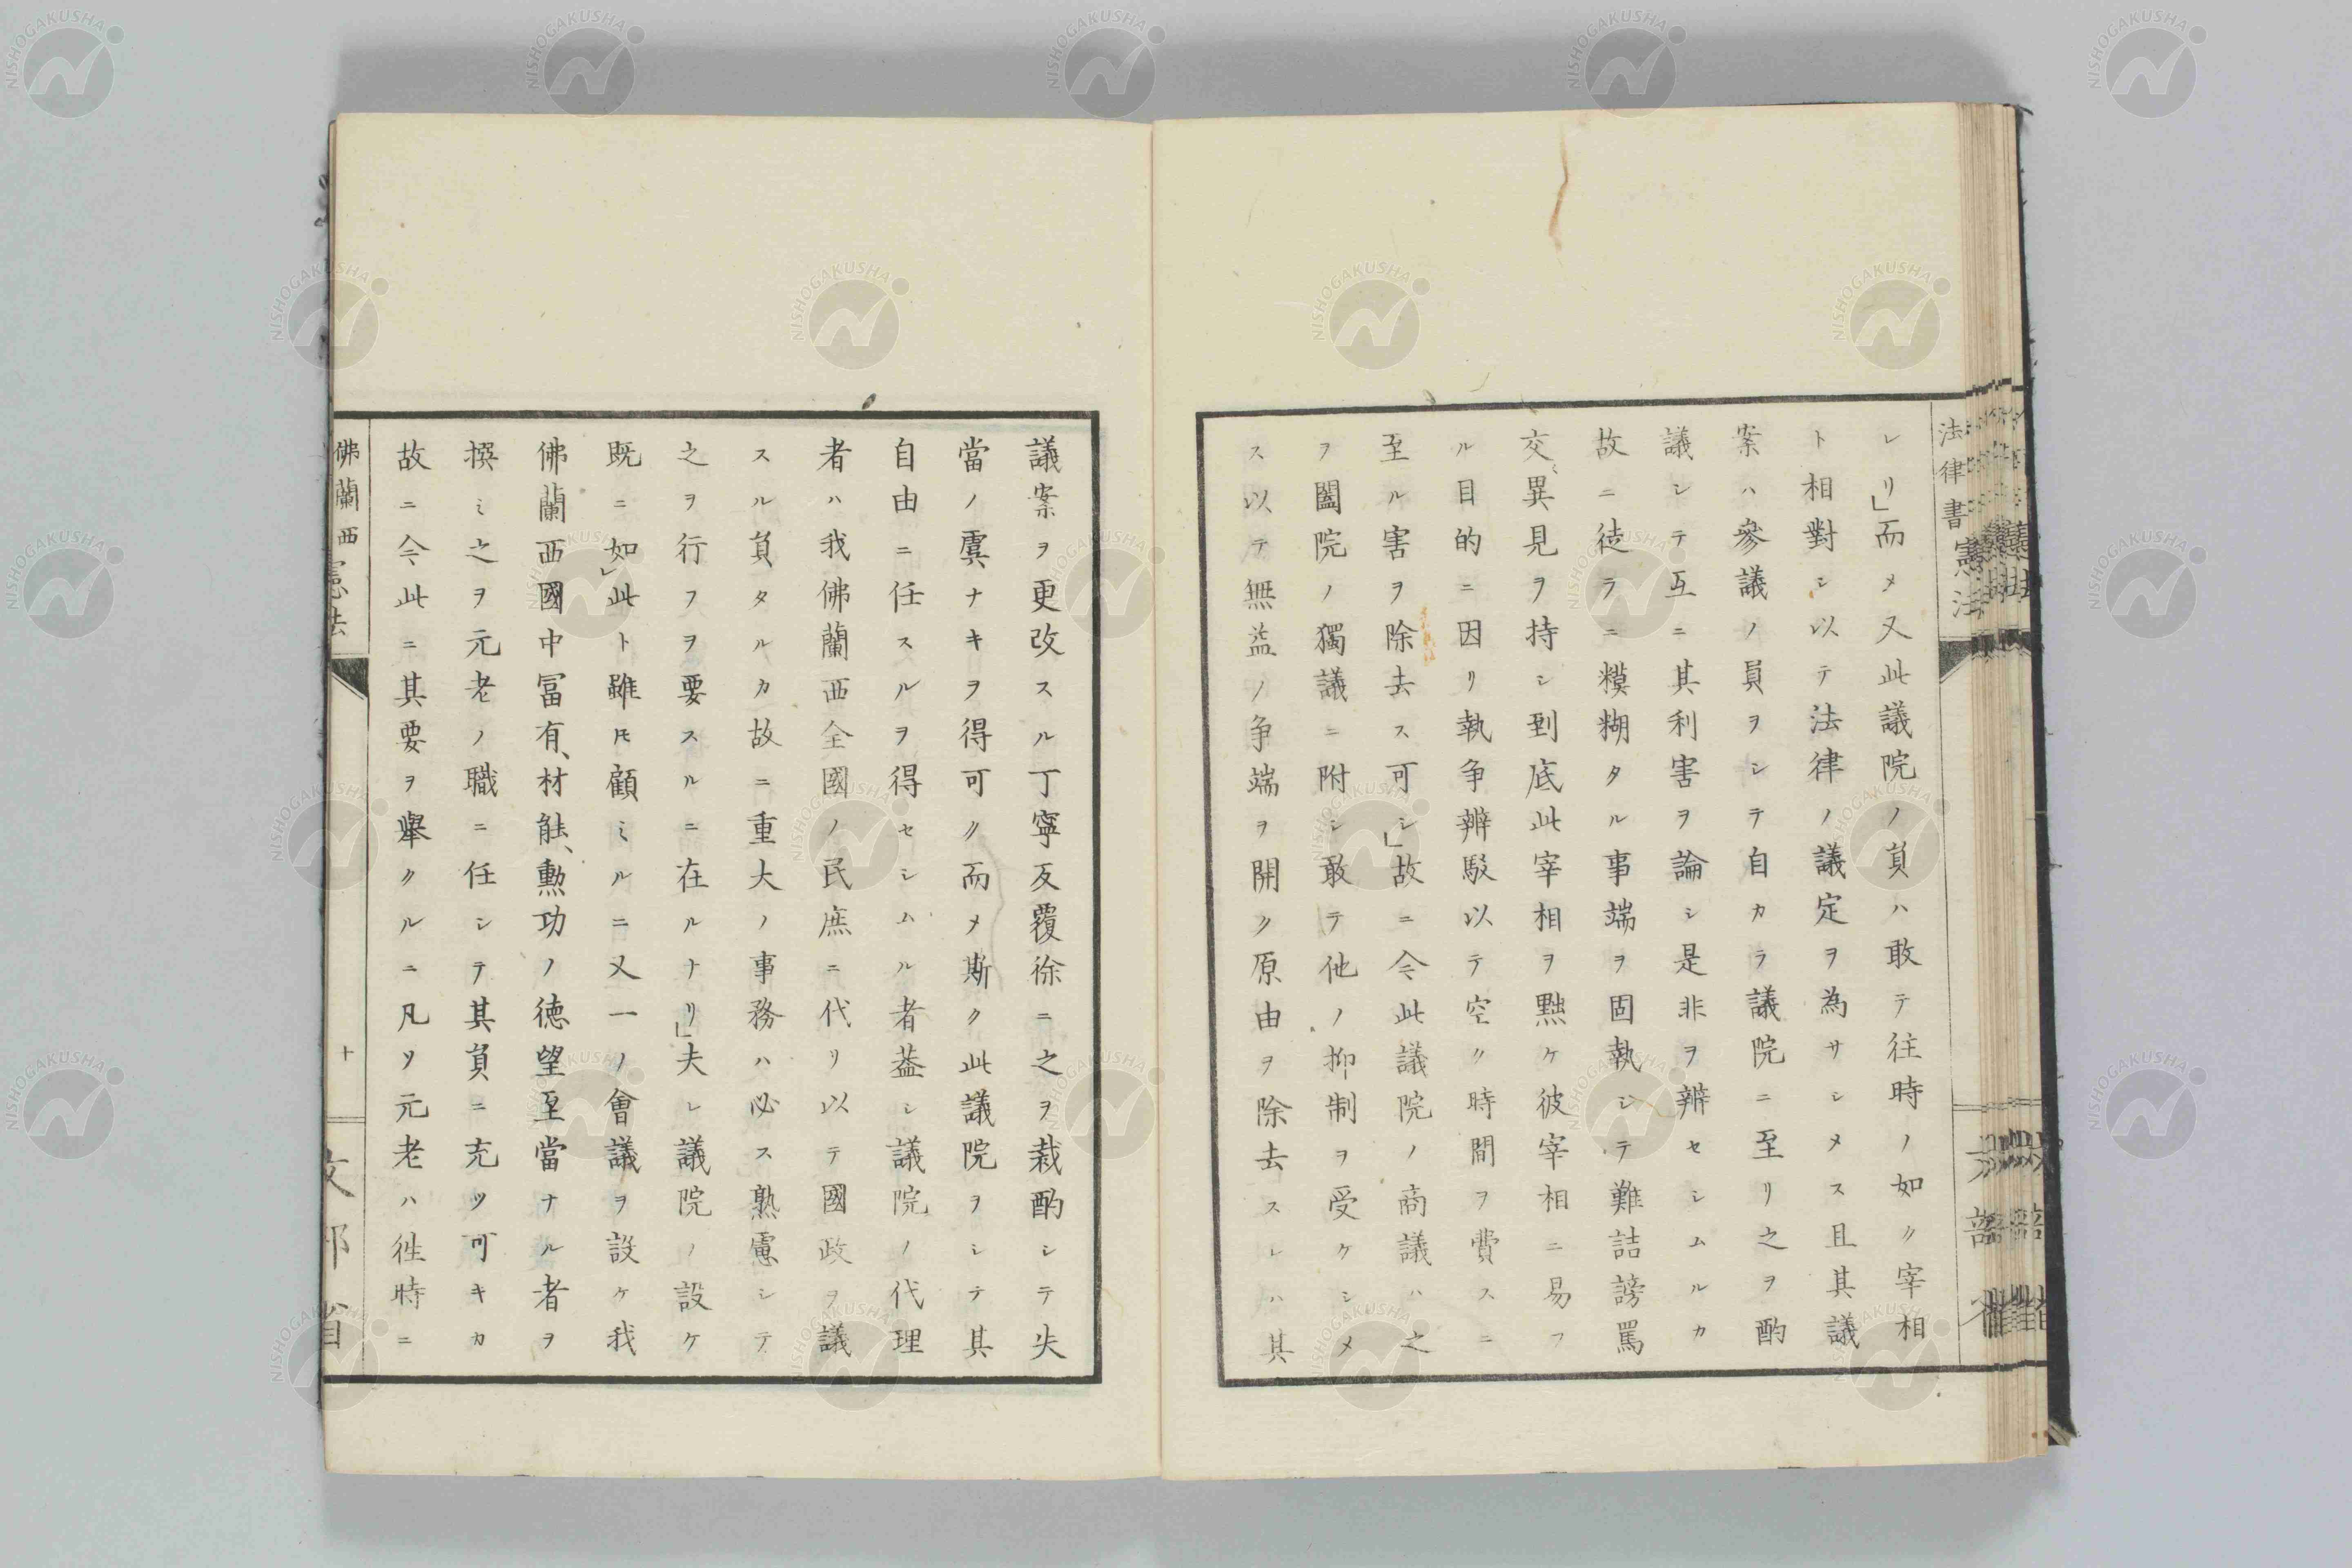 法律書 憲法
レリ」而メ又此議院ノ員ハ敢テ往時ノ如ク宰相
ト相對シ以テ法律ノ議定ヲ為サシメス且其議
案ハ參議ノ員ヲシテ自カラ議院ニ至リ之ヲ酌
議シテ互ニ其利害ヲ論シ是非ヲ辨セシムルカ
故ニ徒ラニ糢糊タル事端ヲ固執シテ難詰謗罵
交〻異見ヲ持シ到底此宰相ヲ黜ケ彼宰相ニ易フ
ル目的ニ因リ執争辨駁以テ空ク時間ヲ費スニ
至ル害ヲ除去ス可シ」故ニ今此議院ノ商議ハ之
ヲ闔院ノ獨議ニ附シ敢テ他ノ抑制ヲ受ケシメ
ス以テ無益ノ争端ヲ開ク原由ヲ除去スレハ其
議案ヲ更改スル丁寧反覆徐ニ之ヲ裁酌シテ失
當ノ虞ナキヲ得可ク而メ斯ク此議院ヲシテ其
自由ニ任スルヲ得セシムル者蓋シ議院ノ代理
者ハ我佛蘭西全國ノ民庶ニ代リ以テ國政ヲ議
スル負タルカ故ニ重大ノ事務ハ必ス熟慮シテ
之ヲ行フヲ要スルニ在ルナリ」夫レ議院ノ設ケ
既ニ如」此ト雖𪜈顧ミルニ又一ノ會議ヲ設ケ我
佛蘭西國中冨有、材能、勲功ノ徳望至當ナル者ヲ
撰ミ之ヲ元老ノ職ニ任シテ其員ニ充ツ可キカ
故ニ今此ニ其要ヲ舉クルニ凡ソ元老ハ徃時ニ
佛蘭西 憲法
十
文部省
NISHOGAKUSHA